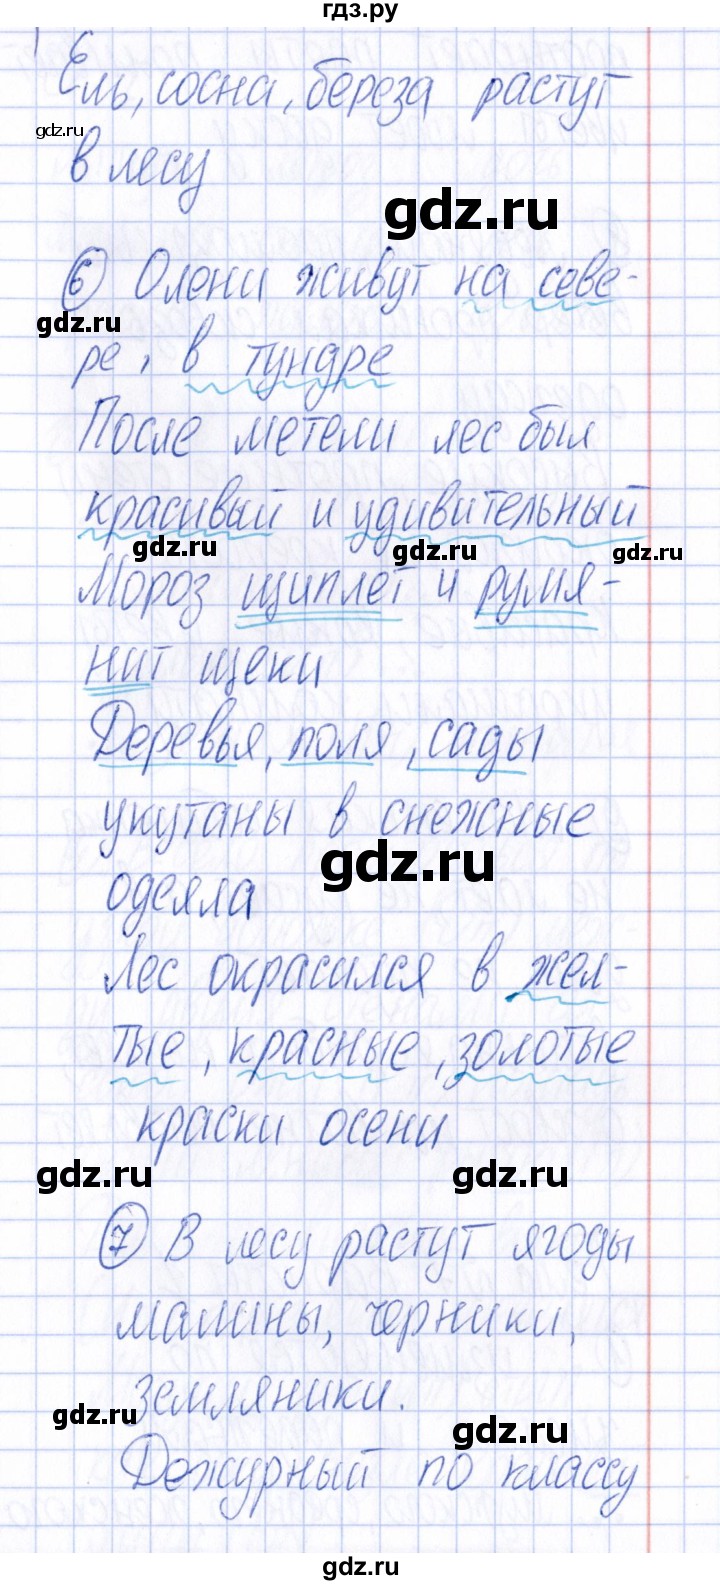 гдз.ру
Ель, сосна, береза растут
gdz.ru
в лесу
gdz.ru
6 Олени живут на севе-
gdz.ru
ре, в тундре
После метели лес был
красивый и удивительный
gdz.ru gdz.ru gdz.ru
Мороз щиплет и румя-
нит щеки
Деревья, поля, сады
укутаны в снежные
gdz.ru
одеяла
Лес окрасился в жел-
тые, красные, золотые
краски осени
gdz.ru gdz.ru
7 В лесу растут ягоды
малины, черники,
земляники.
gdz.ru gdz.ru
Дежурный по классу
gdz.ru